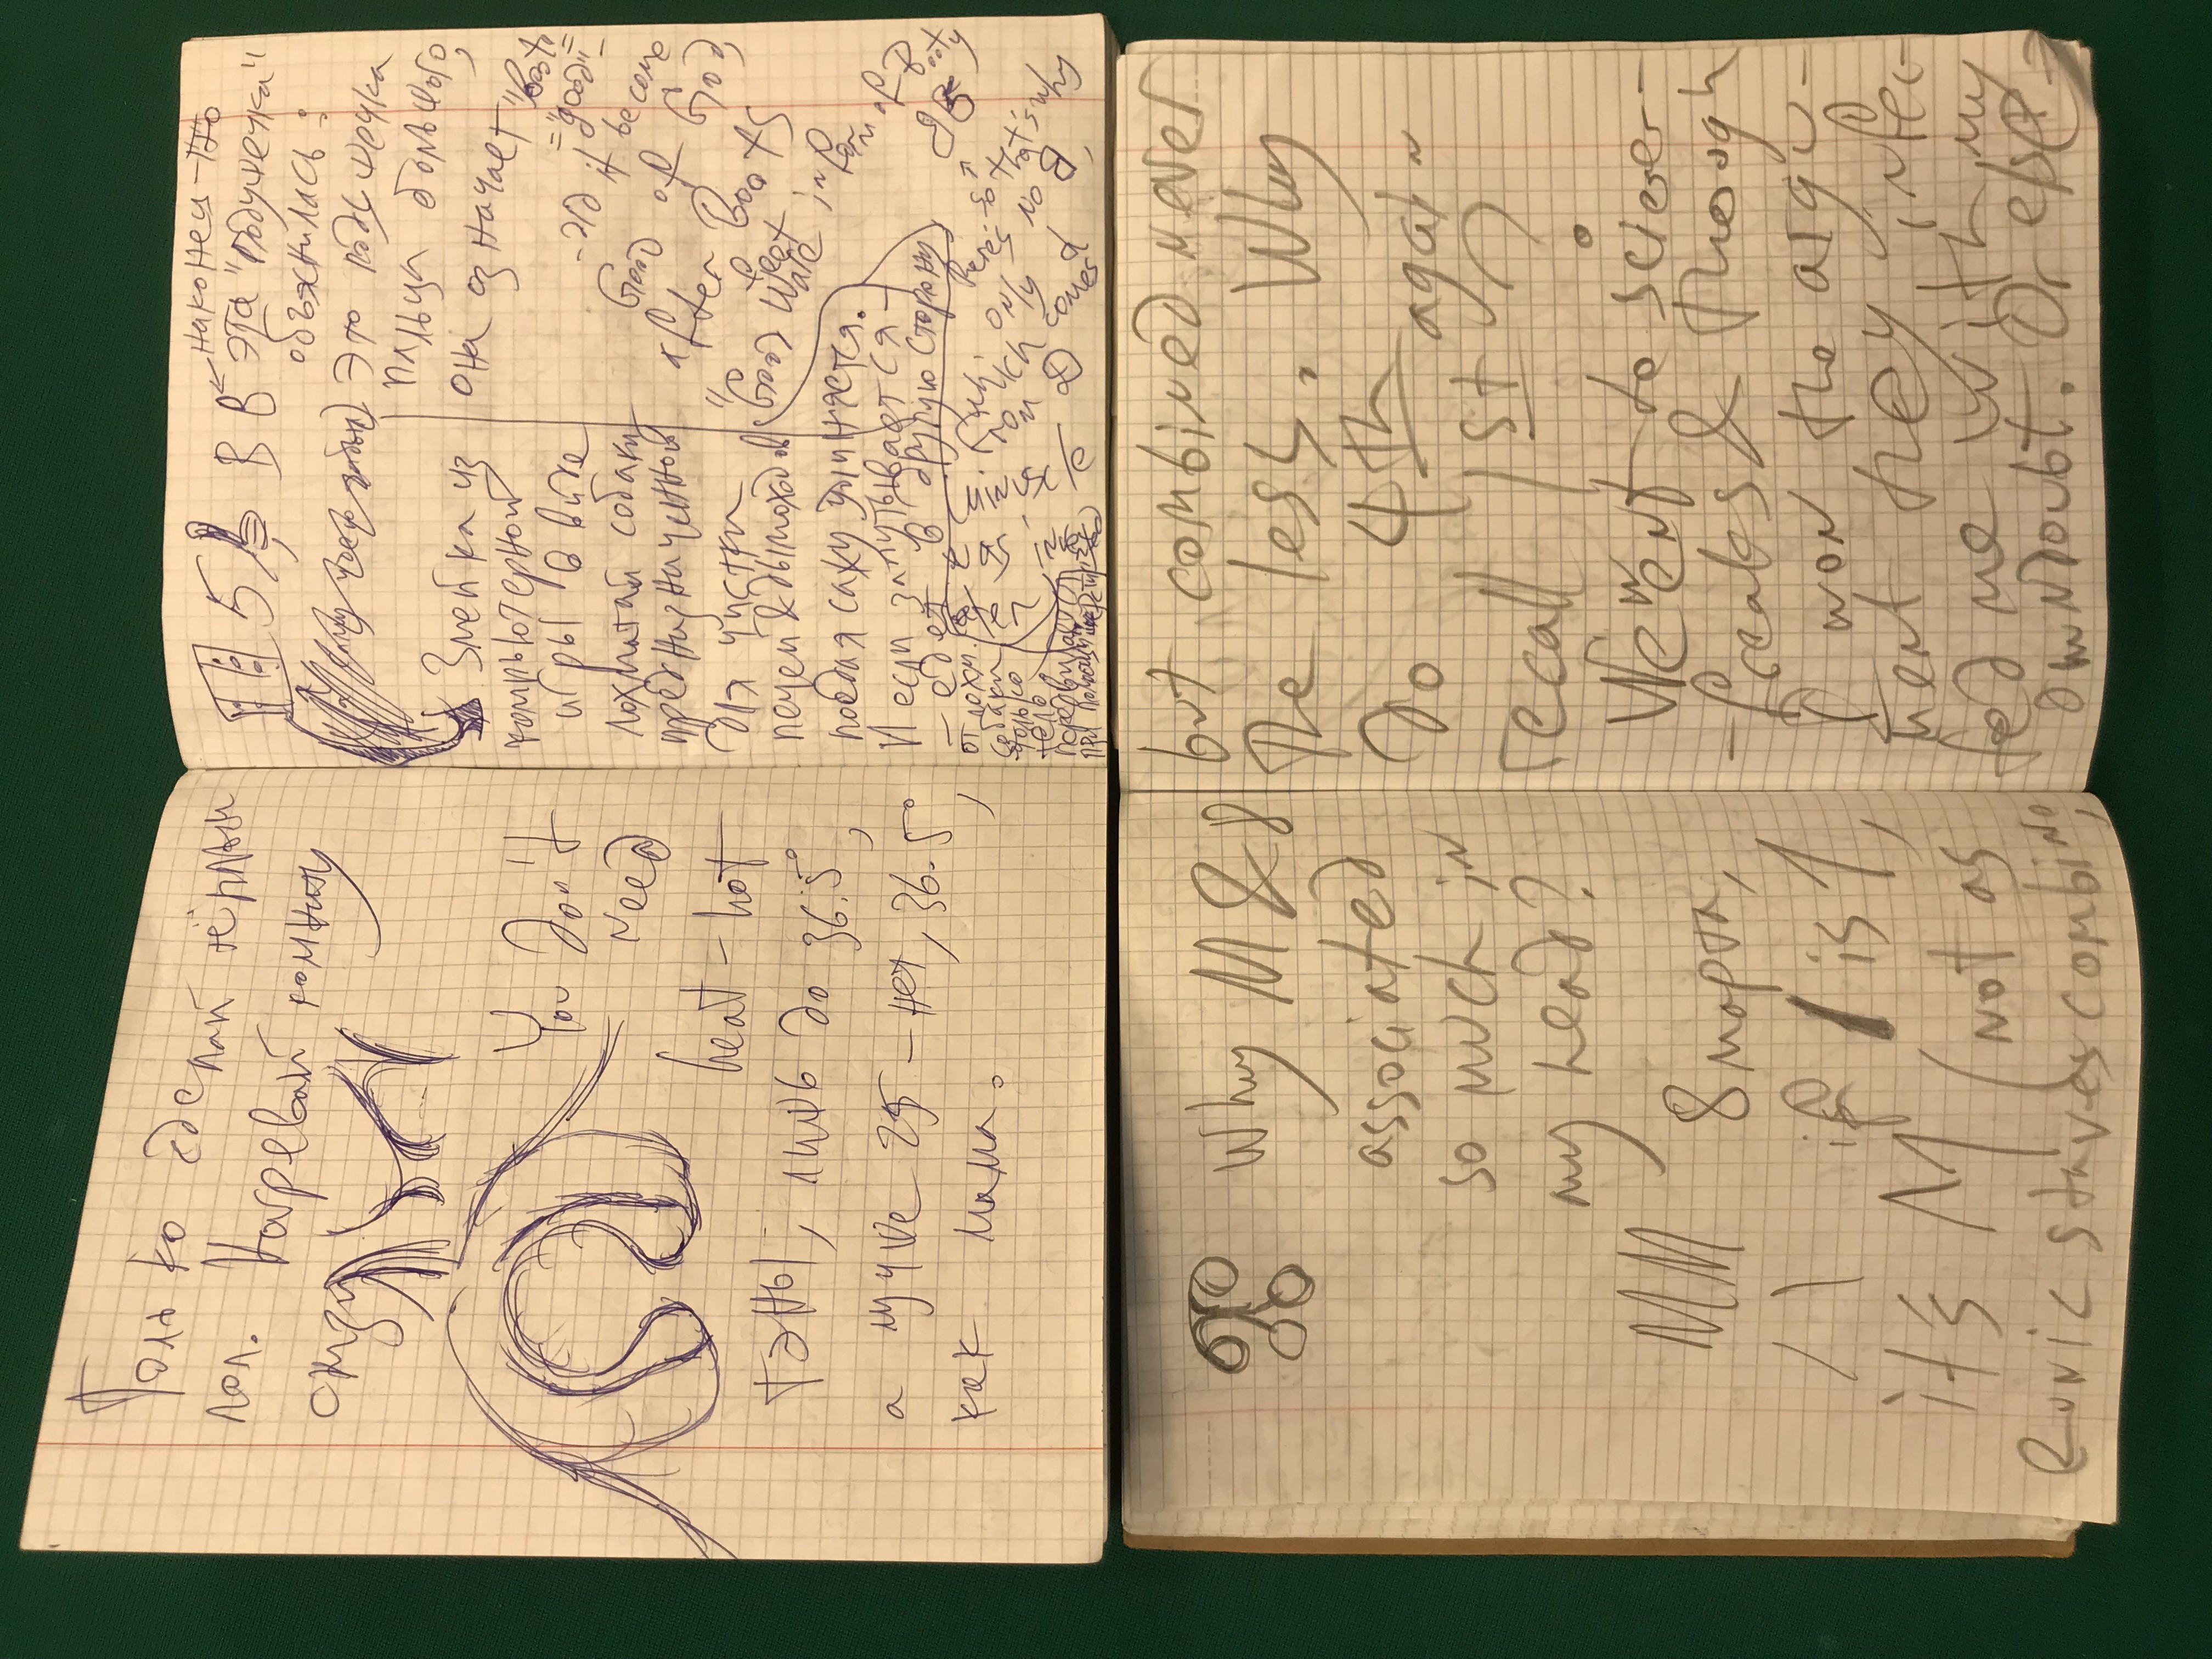 Только сделай тёплый
пол. Нагревай комнату
снизу
You don't
need
heat-hot
тэны, лишь до 36.5°,
а лучше 25 – нет, 36.5°,
как мама.
5 В В
наконец-то
эта "подушечка"
объяснилась:
это подушечка
пальца большого,
она означает "boots"
="good"=
it become
Good of God,
after Boots
"Good feet
ware in form of Booty
Змейка из
компьютерной
игры в виде
лохматой собаки
предназначенной
для чистки
печей & дымоходов
поедая сажу удлиняется.
И если запутывается –
– едет в другую сторону
от лохм.
собаки
только
тело
передвигается
при помощи
that's why
there's no B,
only
which comes
from
Why M & 8
associated
so much in
my head?
MM 8 марта,
/ \ if / is 1,
it's M (not as
Runic staves combine,
but combined never
the less. Why
do 4th again
recall 1st?
We went to scierer-
-freaks & though
I won the argu-
ment they infec-
ted me with my
own doubt. Or else →